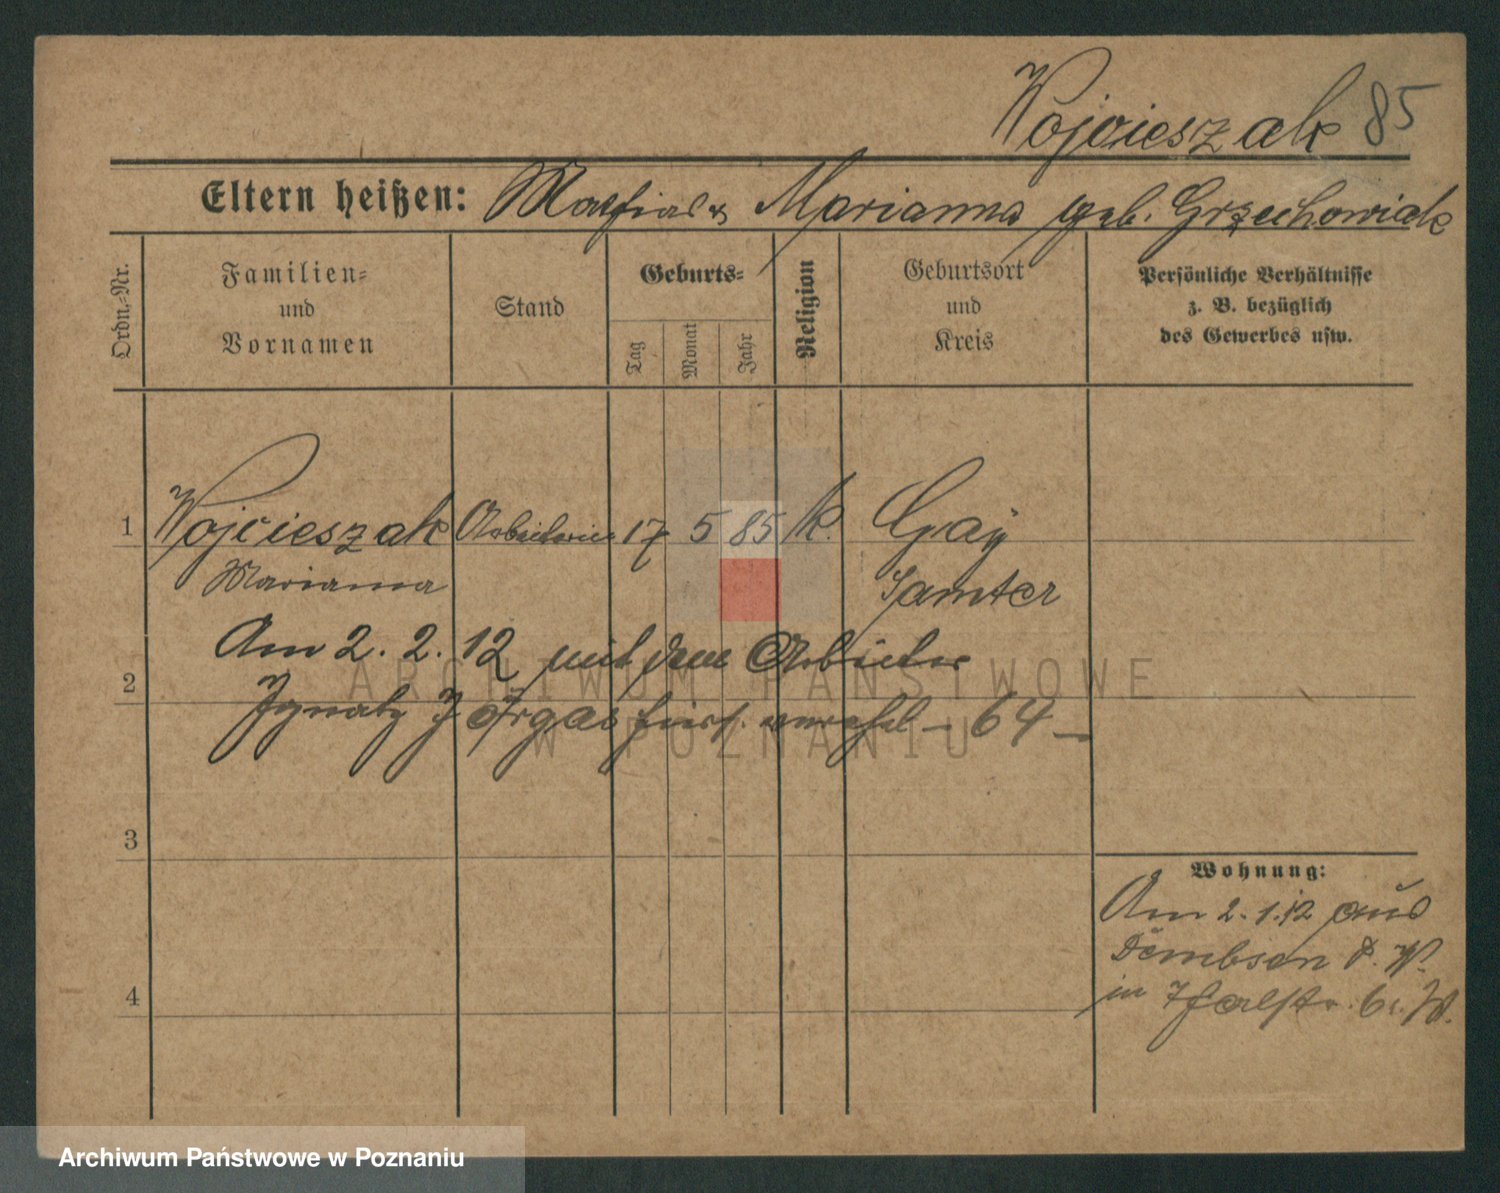 Wojcieszak 85
Eltern heißen: Mathias & Marianna geb. Grzechowiak
Ordn.-Nr.
Familien-
und
Vornamen
Stand
Geburts-
Tag
Monat
Jahr
Religion
Geburtsort
und
Kreis
Persönliche Verhältnisse
z. B. bezüglich
des Gewerbes usw.
1 Wojcieszak Arbeiterin 17 5 85 k. Gay
Marianna Samter
Am 2. 2. 12 mit dem Arbeiter
2
Ignatz verehel – 64 –
3
4
Wohnung:
Am 2. 1. 12 aus
Dembsen
in
ARCHIWUM PAŃSTWOWE
W POZNANIU
Archiwum Państwowe w Poznaniu